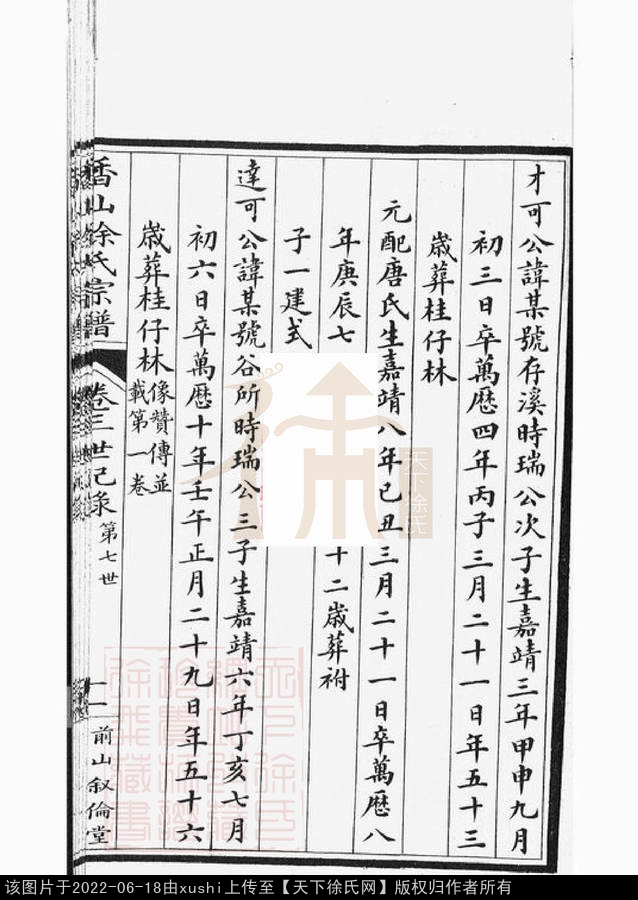 才可公諱某號存溪時瑞公次子生嘉靖三年甲申九月
初三日卒萬歷四年丙子三月二十一日年五十三
歲葬桂仔林
元配唐氏生嘉靖八年己丑三月二十一日卒萬歷八
年庚辰七
十二歲葬祔
子一建式
達可公諱某號谷所時瑞公三子生嘉靖六年丁亥七月
初六日卒萬歷十年壬午正月二十九日年五十六
歲葬桂仔林
像贊傳並
載第一卷
香山徐氏宗譜
卷三世己录 第七世
十一
前山叙倫堂
天下徐氏
该图片于2022-06-18由xushi上传至【天下徐氏网】版权归作者所有